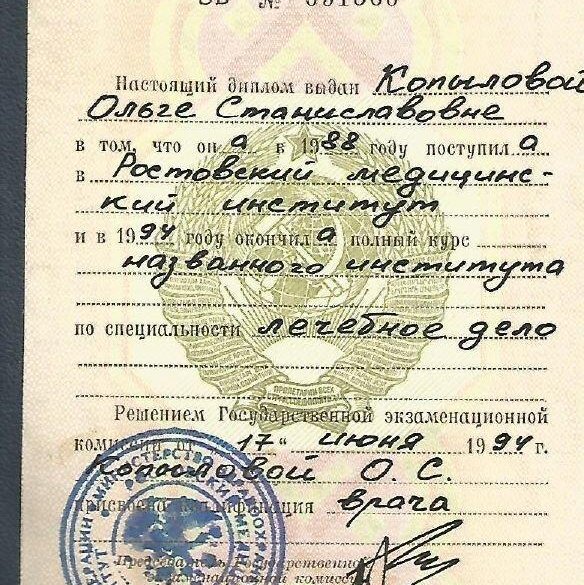 Настоящий диплом выдан Копыловой
Ольге Станиславовне
в том, что он а в 1988 году поступил а
в Ростовский медицинс-
кий институт
и в 1994 году окончил а полный курс
названного института
по специальности лечебное дело
ПРОЛЕТАРИИ ВСЕХ
Решением Государственной экзаменационной
комиссии от 17 " июня 1994 г.
Копыловой О. С.
присвоена квалификация врача
Председатель Государственной
экзаменационной комиссии